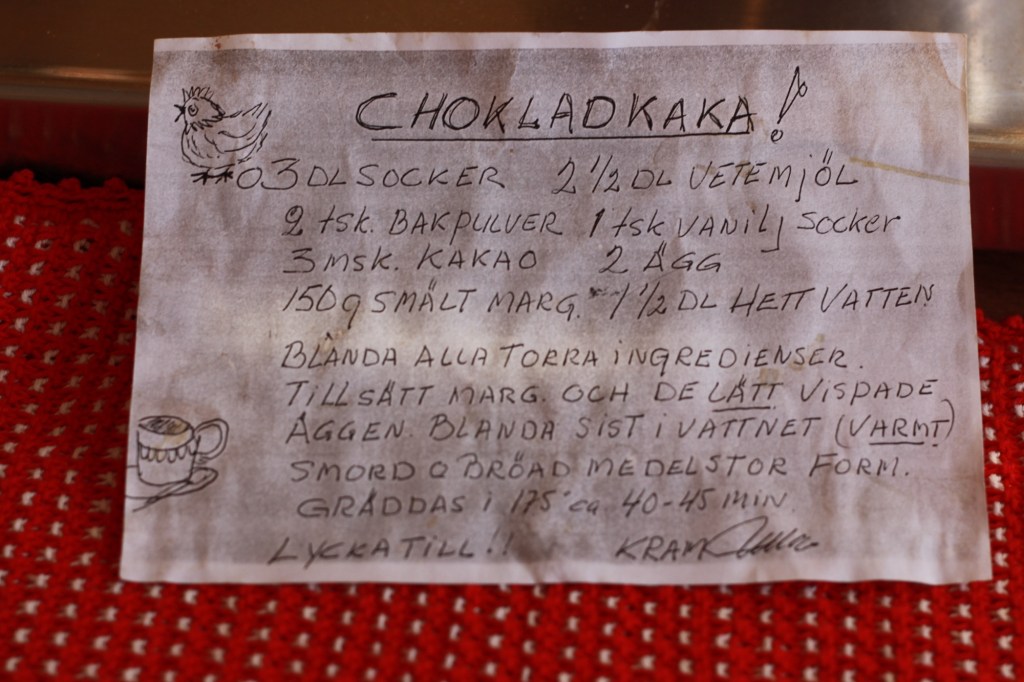 CHOKLADKAKA!
3 DL SOCKER 2 1/2 DL VETEMJÖL
2 tsk. BAKPULVER 1 tsk VANILJ SOCKER
3 msk. KAKAO 2 ÄGG
150g SMÄLT MARG. 1 1/2 DL HETT VATTEN
BLANDA ALLA TORRA INGREDIENSER.
TILLSÄTT MARG. OCH DE LÄTT VISPADE
ÄGGEN. BLANDA SIST I VATTNET (VARMT)
SMORD O BRÖAD MEDELSTOR FORM.
GRÄDDAS I 175° ca 40-45 MIN.
LYCKA TILL!! KRAM